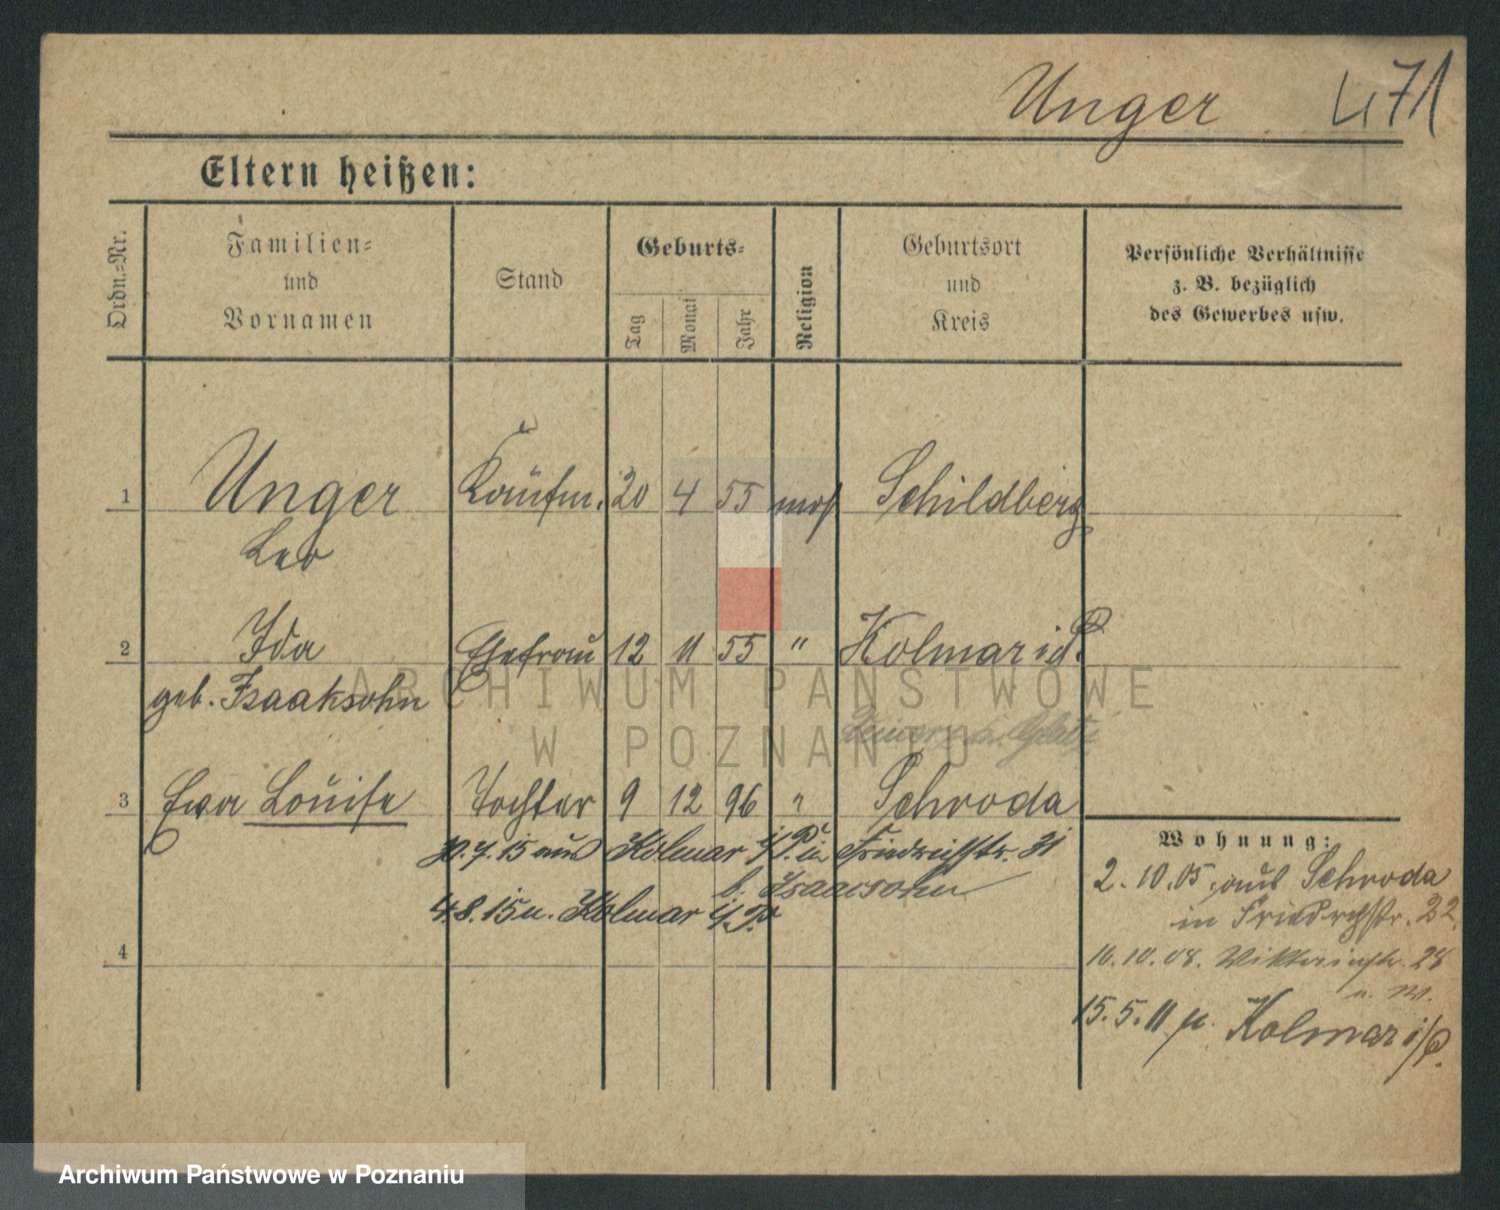 Unger 471
Eltern heißen:
Ordn.-Nr.
Familien-
und
Vornamen
Stand
Geburts-
Tag
Monat
Jahr
Religion
Geburtsort
und
Kreis
Persönliche Verhältnisse
z. B. bezüglich
des Gewerbes usw.
1 Unger Kaufm. 20 4 55 mos Schildberg
Leo
2 Ida Ehefrau 12 11 55 " Kolmar i.P.
geb. Isaaksohn
ARCHIWUM PAŃSTWOWE
W POZNANIU
3 Ewa Louise Tochter 9 12 96 " Schroda
7.15 aus Kolmar i/P. in Friedrichstr. 31
b. Isaacsohn
4.8.15 n. Kolmar i/P.
4
Wohnung:
2.10.05 aus Schroda
in Friedrchstr. 22
16.10.08. Viktoriastr. 28
15.5.11 Kolmar i/P.
Archiwum Państwowe w Poznaniu